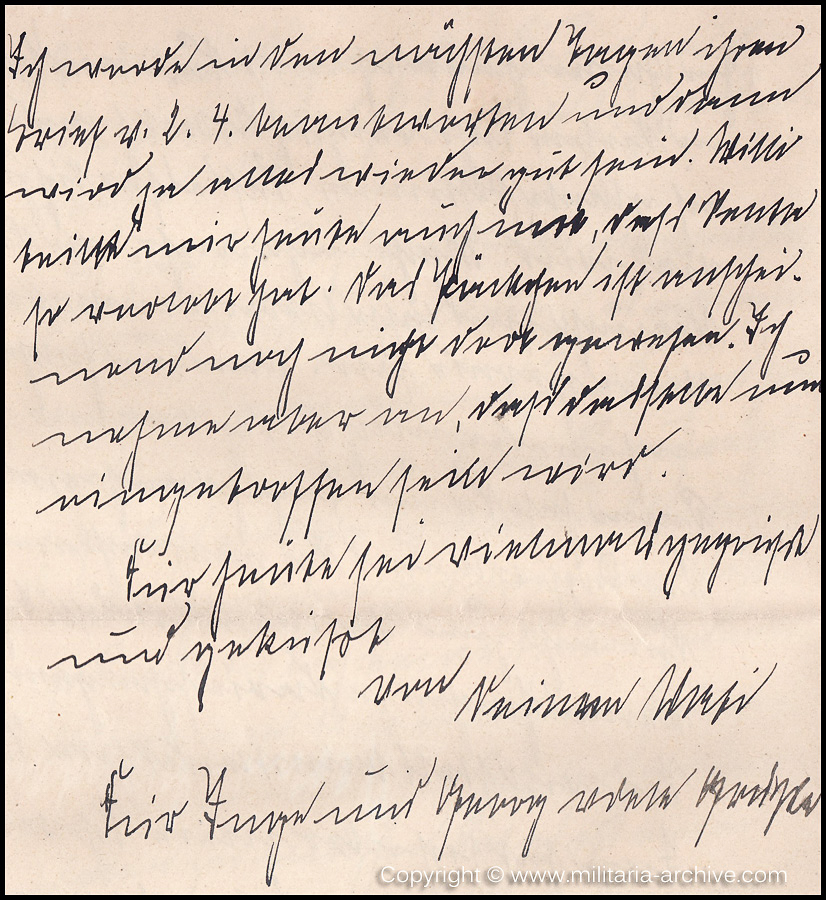 Ich werde in den nächsten Tagen ihren
Brief v. 2. 4. beantworten und dann
wird ja alles wieder gut sein. Willi
teilte mir heute auch mit, dass
so verlobt hat. Das Päckchen ist anschei-
nend noch nicht dort gewesen. Ich
nehme aber an, dass dasselbe nun
eingetroffen sein wird.
Für heute sei vielmals gegrüsst
und geküsst
von Deinem
Für Inge und Georg viele Grüsse
Copyright © www.militaria-archive.com